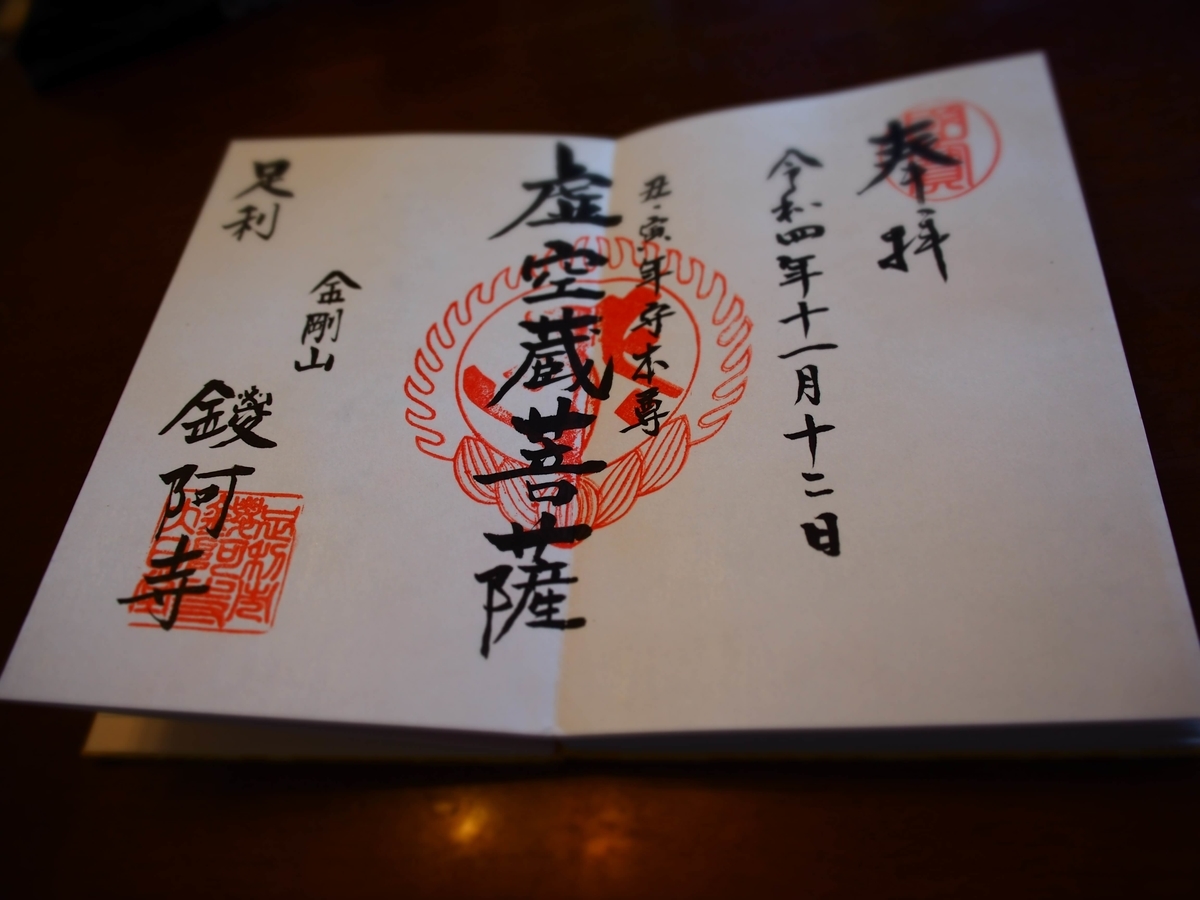 奉拝
令和四年十一月十二日
丑・寅年守本尊
虚空蔵菩薩
足利
金剛山
鑁阿寺